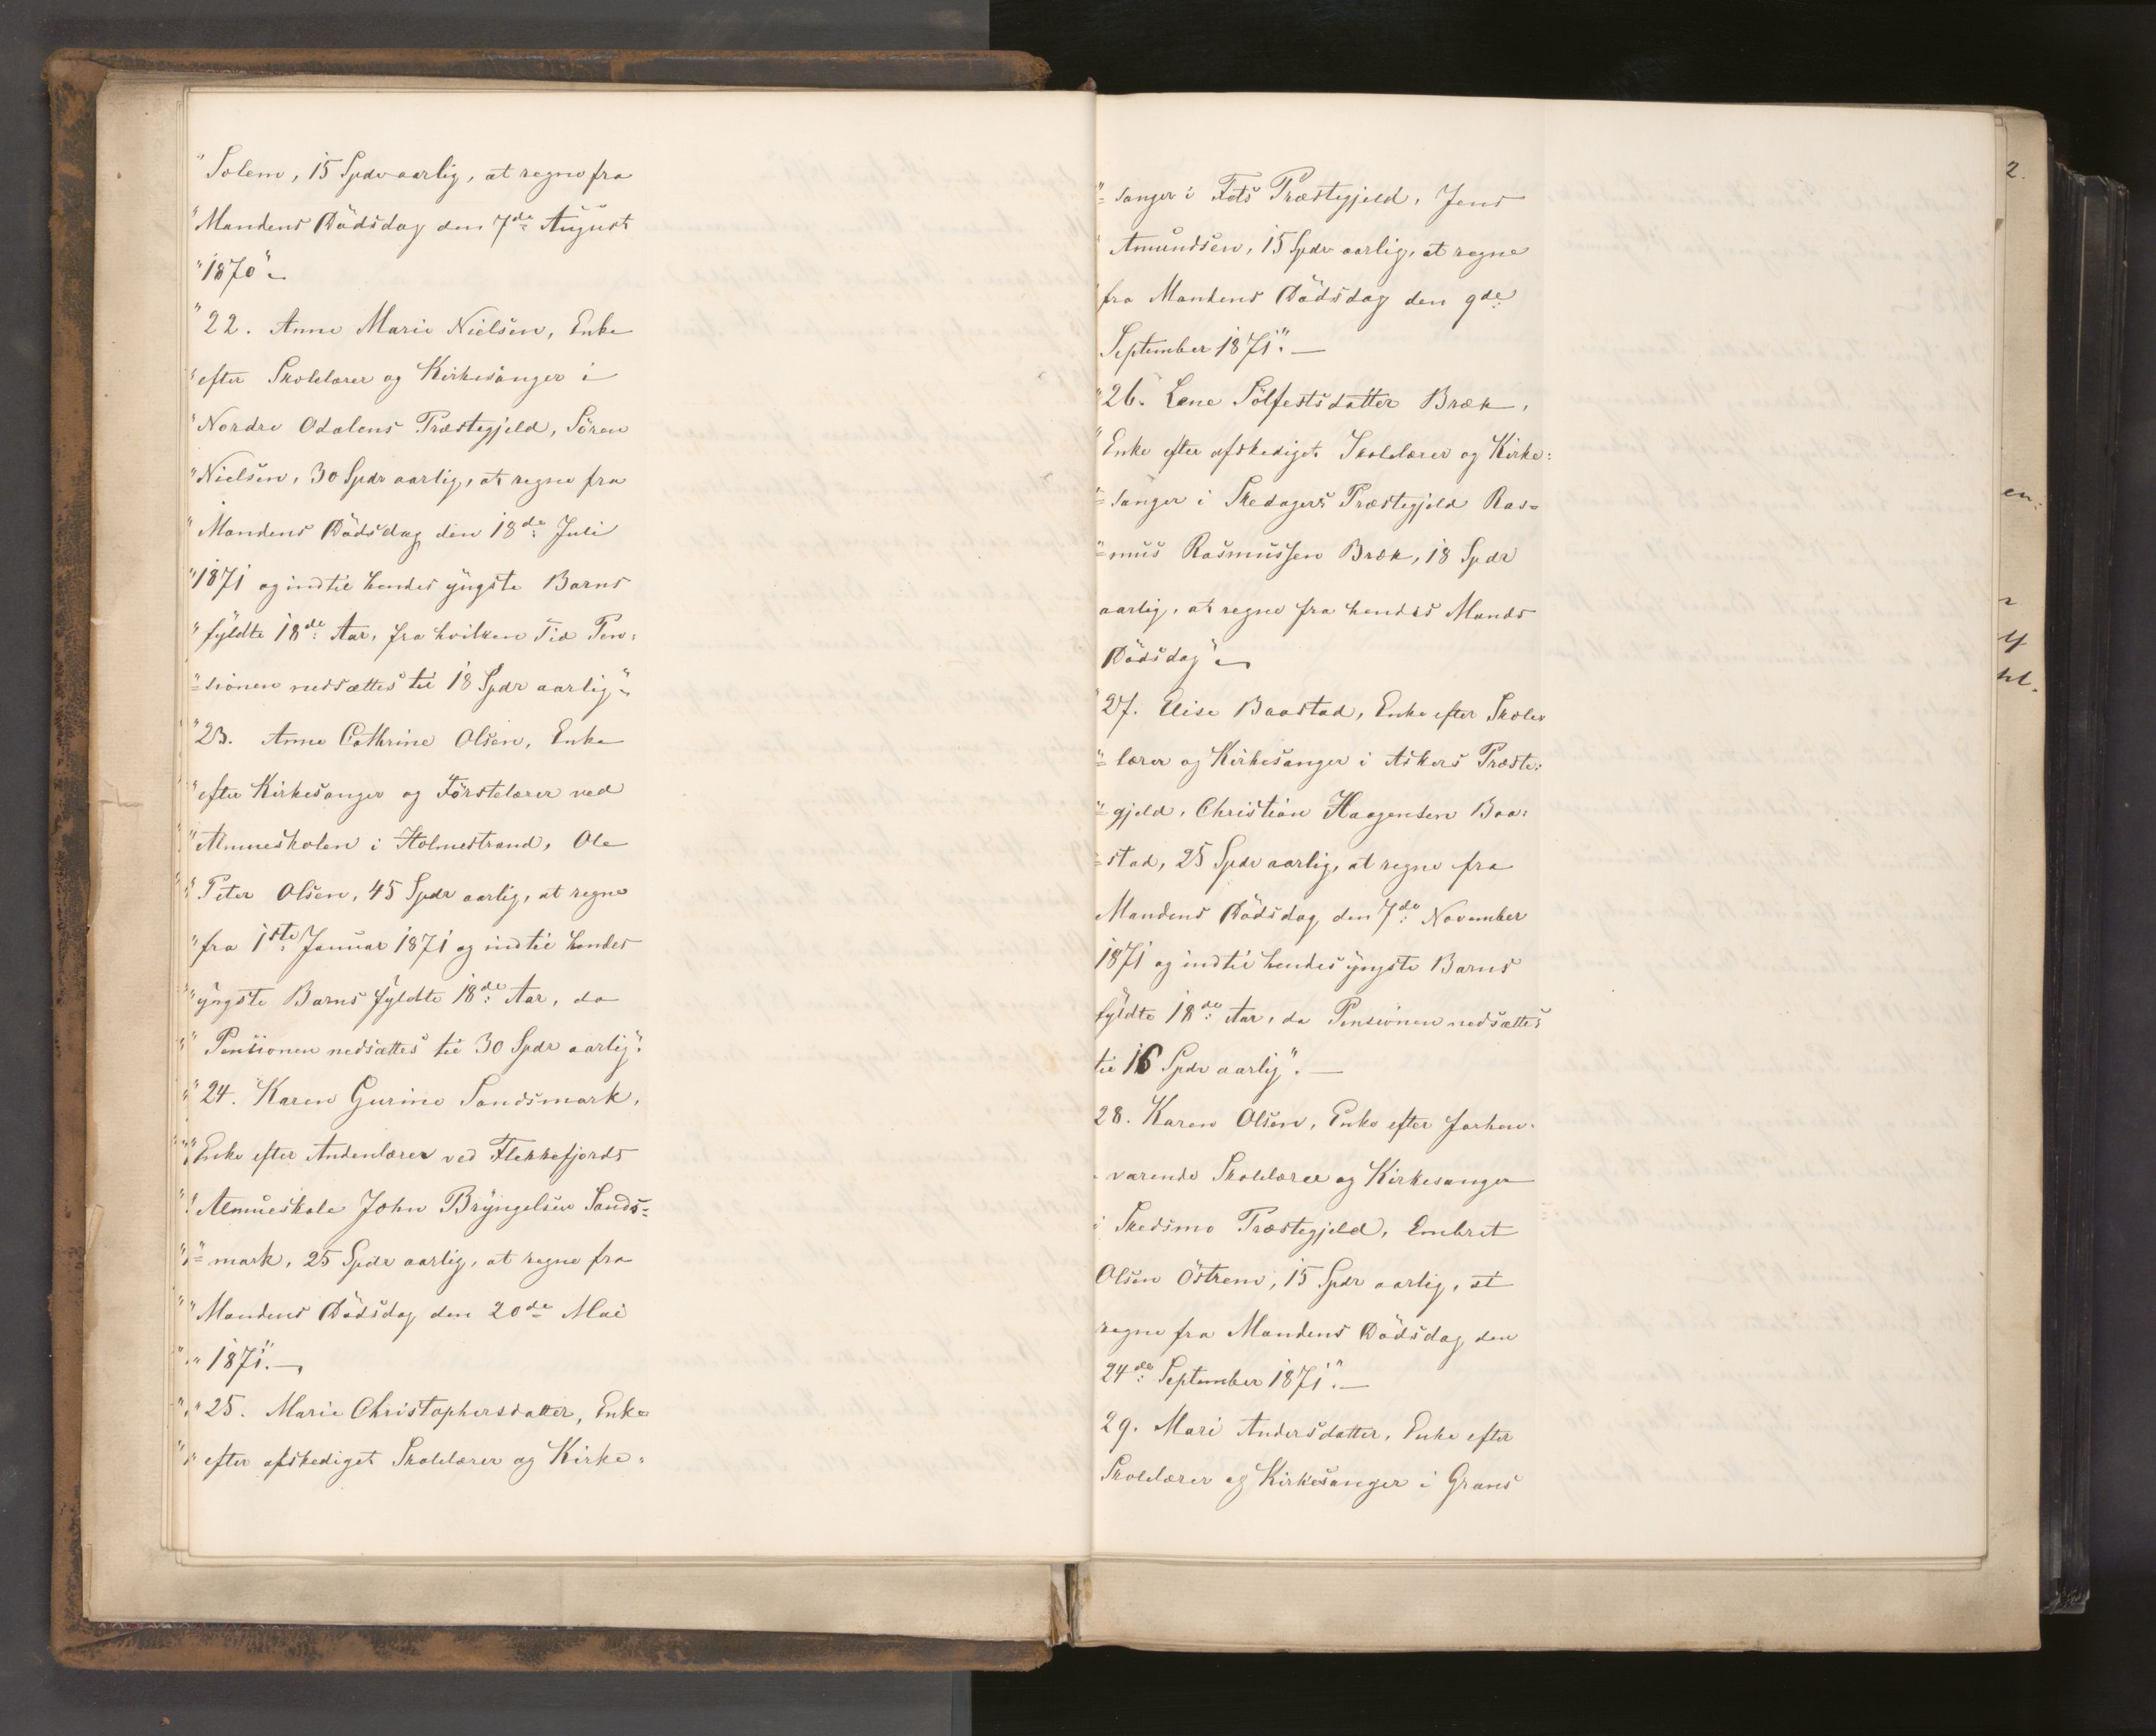 "Solem, 15 Spdr aarlig, at regne fra
"Mandens Dødsdag den 7de August
"1870".
"22. Anne Marie Nielsen, Enke
"efter Skolelærer og Kirkesanger i
"Nordre Odalens Præstegjeld, Sören
"Nielsen, 30 Spdr aarlig, at regne fra
"Mandens Dödsdag den 18de Juli
"1871 og indtil hendes yngste Barns
"fyldte 18de Aar, fra hvilken Tid Pen=
"=sionen nedsættes til 18 Spdr aarlig".
"23. Anne Cathrine Olsen, Enke
"efter Kirkesanger og Förstelærer ved
"Almueskolen i Holmestrand, Ole
"Peter Olsen, 45 Spdr aarlig, at regne
"fra 1ste Januar 1871 og indtil hendes
"yngste Barns fyldte 18de Aar, da
"Pensionen nedsættes til 30 Spdr aarlig".
"24. Karen Gurine Sandsmark,
"Enke efter Andenlærer ved Flekkefjords
"Almueskole John Bryngelsen Sands=
"=mark, 25 Spdr aarlig, at regne fra
"Mandens Dödsdag den 20de Mai
"1871".—
"25. Marie Christophersdatter, Enke
"efter afskediget Skolelærer og Kirke=
"=sanger i Fets Præstegjeld, Jens
Amundsen, 15 Spdr aarlig, at regne
fra Mandens Dödsdag den 9de
September 1871".—
"26. Lene Sölfestsdatter Bræk,
"Enke efter afskediget Skolelærer og Kirke=
"=sanger i Skedagers Præstegjeld Ras=
"=mus Rasmussen Bræk, 18 Spdr
aarlig, at regne fra hendes Mands
Dödsdag".
"27. Elise Baastad, Enke efter Skole=
"=lærer og Kirkesanger i Askers Præste=
"=gjeld, Christian Haagensen Baa=
=stad, 25 Spdr aarlig, at regne fra
Mandens Dödsdag den 7de November
1871 og indtil hendes yngste Barns
fyldte 18de Aar, da Pensionen nedsættes
til 16 Spdr aarlig".—
28. Karen Olsen, Enke efter forhen=
=værende Skolelærer og Kirkesanger
i Skedsmo Præstegjeld, Embret
Olsen Östrem, 15 Spdr aarlig, at
regne fra Mandens Dödsdag den
24de September 1871".—
29. Mari Andersdatter, Enke efter
Skolelærer og Kirkesanger i Grans
2.
en.